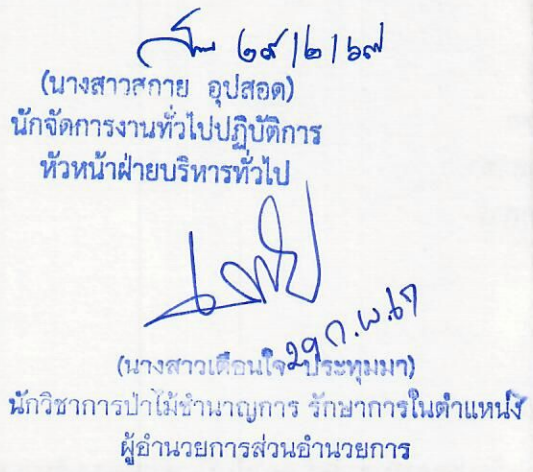 ๒๙/๒/๖๗
(นางสาวสกาย อุปสอด)
นักจัดการงานทั่วไปปฏิบัติการ
หัวหน้าฝ่ายบริหารทั่วไป
29 ก.พ.67
(นางสาวเตือนใจ ประทุมมา)
นักวิชาการป่าไม้ชำนาญการ รักษาการในตำแหน่ง
ผู้อำนวยการส่วนอำนวยการ